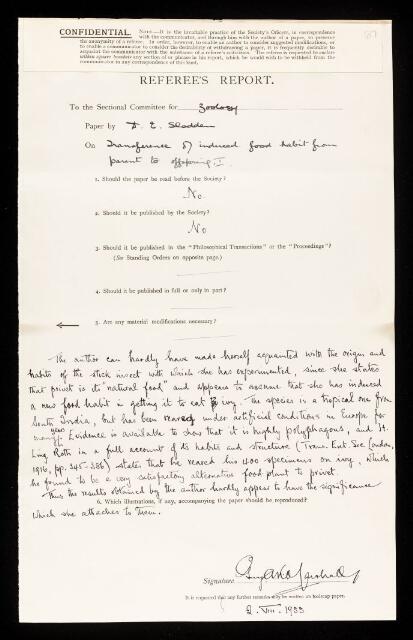 67
CONFIDENTIAL
NOTE.—It is the invariable practice of the Society's Officers, in correspondence
with the communicator, and through him with the author of a paper, to preserve
the anonymity of a referee. In order, however, to enable an author to consider suggested modifications, or
to enable a communicator to consider the desirability of withdrawing a paper, it is frequently desirable to
acquaint the communicator with the substance of a referee's criticisms. The referee is requested to enclose
within square brackets any section of or phrase in his report, which he would wish to be withheld from the
communicator in any correspondence of this kind.
REFEREE'S REPORT.
To the Sectional Committee for Zoology
Paper by D. E. Sladden
On Transference of induced food habit from
parent to offspring I.
1. Should the paper be read before the Society?
No.
2. Should it be published by the Society?
No
3. Should it be published in the "Philosophical Transactions" or the "Proceedings"?
(See Standing Orders on opposite page.)
4. Should it be published in full or only in part?
5. Are any material modifications necessary?
The author can hardly have made herself acquainted with the origin and
habits of the stick insect with which she has experimented, since she states
that privet is its "natural food" and appears to assume that she has induced
a new food habit in getting it to eat ivy. The species is a tropical one from
South India, but has been reared under artificial conditions in Europe for
many years. Evidence is available to show that it is highly polyphagous, and H.
Ling Roth in a full account of its habits and structure (Trans. Ent. Soc. London,
1916, pp. 345-386) states that he reared his 400 specimens on ivy, which
he found to be a very satisfactory alternative food plant to privet.
Thus the results obtained by the author hardly appear to have the significance
6. Which illustrations, if any, accompanying the paper should be reproduced?
which she attaches to them.
Signature Guy A K Marshall
It is requested that any further remarks may be written on foolscap paper.
2. VIII. 1933